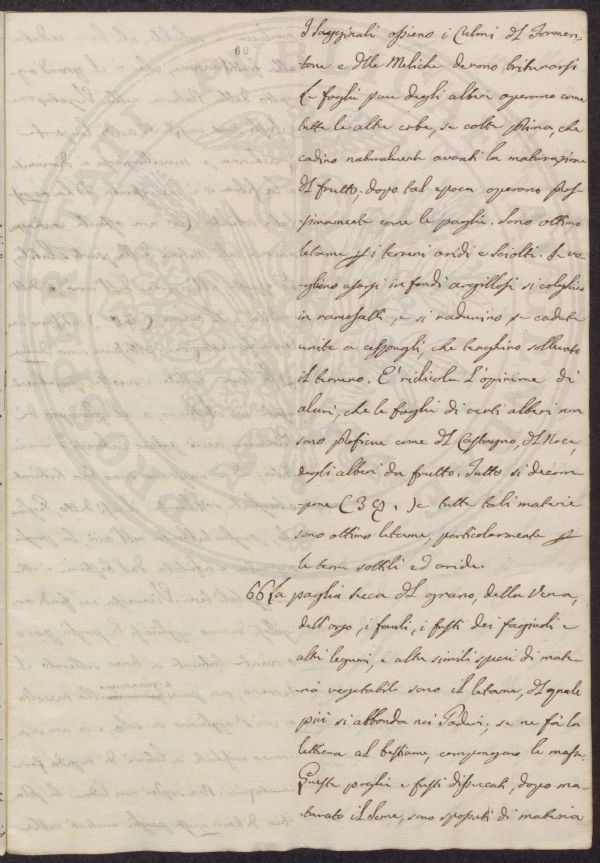 60
I Sagginali ossieno i Culmi del Formen-
tone e delle Meliche devono triturarsi
Le foglie pure degli alberi operano come
tutte le altre erbe, se colte prima, che
cadino naturalmente avanti la maturazione
del frutto; dopo tal epoca operano pres-
simamente come le paglie. Sono ottimo
letame per i terreni aridi e sciolti. Se vo-
gliono usarsi in fondi argillosi si colghino
in ramoscelli, e si radunino se cadute
unite a cespugli, che tenghino sollevato
il terreno. E' ridicola l'opinione di
alcuni, che le foglie di certi alberi non
sono proficue come del Castagno, del Noce,
degli alberi da frutto. Tutto si decom-
pone (39.) e tutte tali materie
sono ottimo letame, particolarmente per
le terre sottili ed aride.
66 La paglia secca del grano, della Vena,
dell'orzo, i fusti dei fagiuoli e
altri legumi, e altre simili specie di mate-
ria vegetabile sono il letame, del quale
più si abbonda nei Poderi, se ne fà la
lettiera al bestiame, compongono le masse.
Queste paglie e fusti disseccati, dopo ma-
turato il Seme, sono spossati di materia